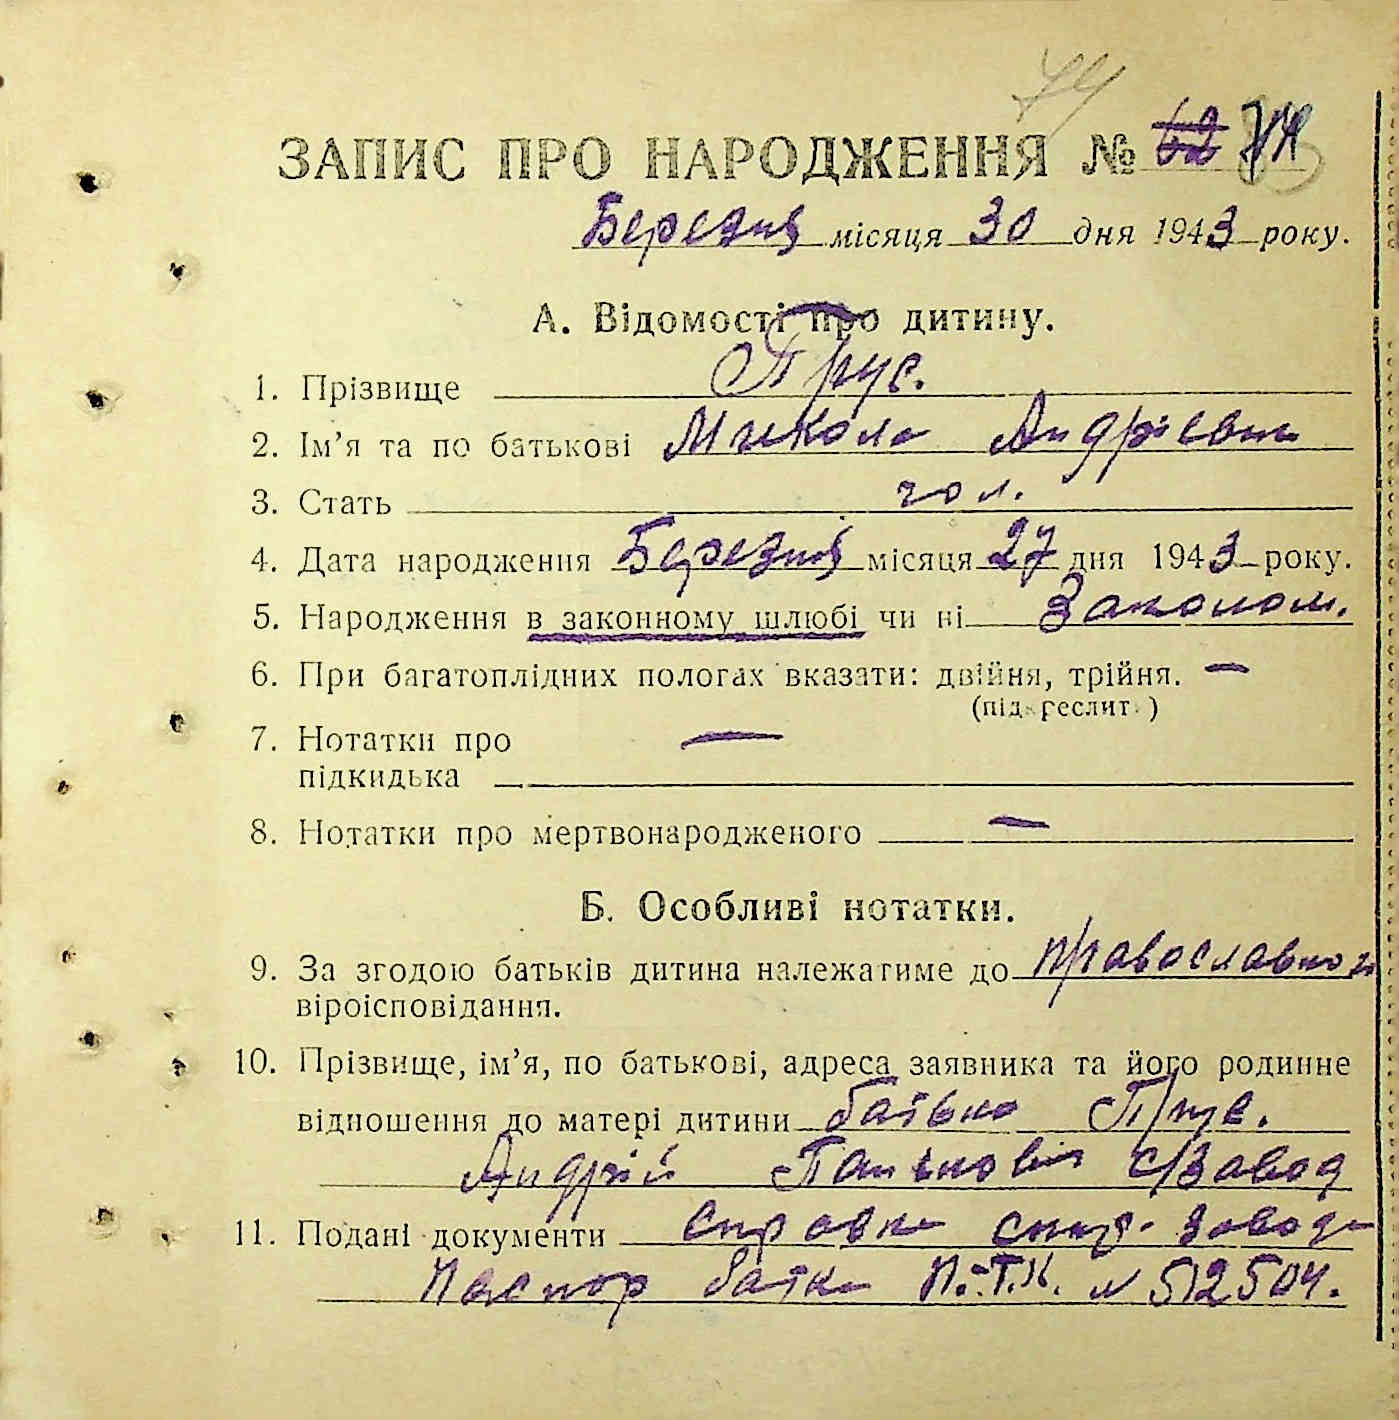 74
ЗАПИС ПРО НАРОДЖЕННЯ № 62 74
Березня місяця 30 дня 1943 року.
А. Відомості про дитину.
1. Прізвище Прус.
2. Ім’я та по батькові Микола Андрієвич
3. Стать чол.
4. Дата народження Березня місяця 27 дня 1943 року.
5. Народження в законному шлюбі чи ні Законом.
6. При багатоплідних пологах вказати: двійня, трійня. —
(підкреслит )
7. Нотатки про —
підкидька
8. Нотатки про мертвонародженого —
Б. Особливі нотатки.
9. За згодою батьків дитина належатиме до православного
віроісповідання.
10. Прізвище, ім’я, по батькові, адреса заявника та його родинне
відношення до матері дитини батько Прус.
Андрій Панькович с/Завод
11. Подані документи Справка спир. завода
Паспор батка № 512504.